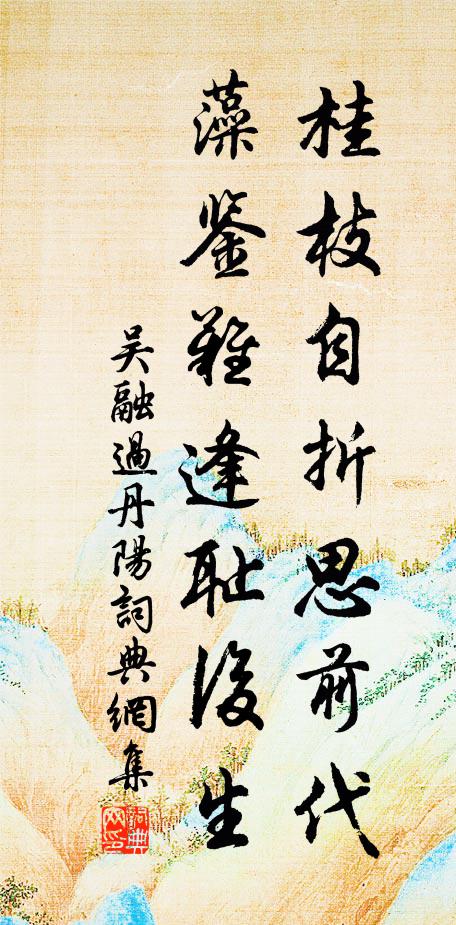 桂枝自折思前代
藻鉴难逢耻後生
吴融過丹陽詞典網集
詞典网印